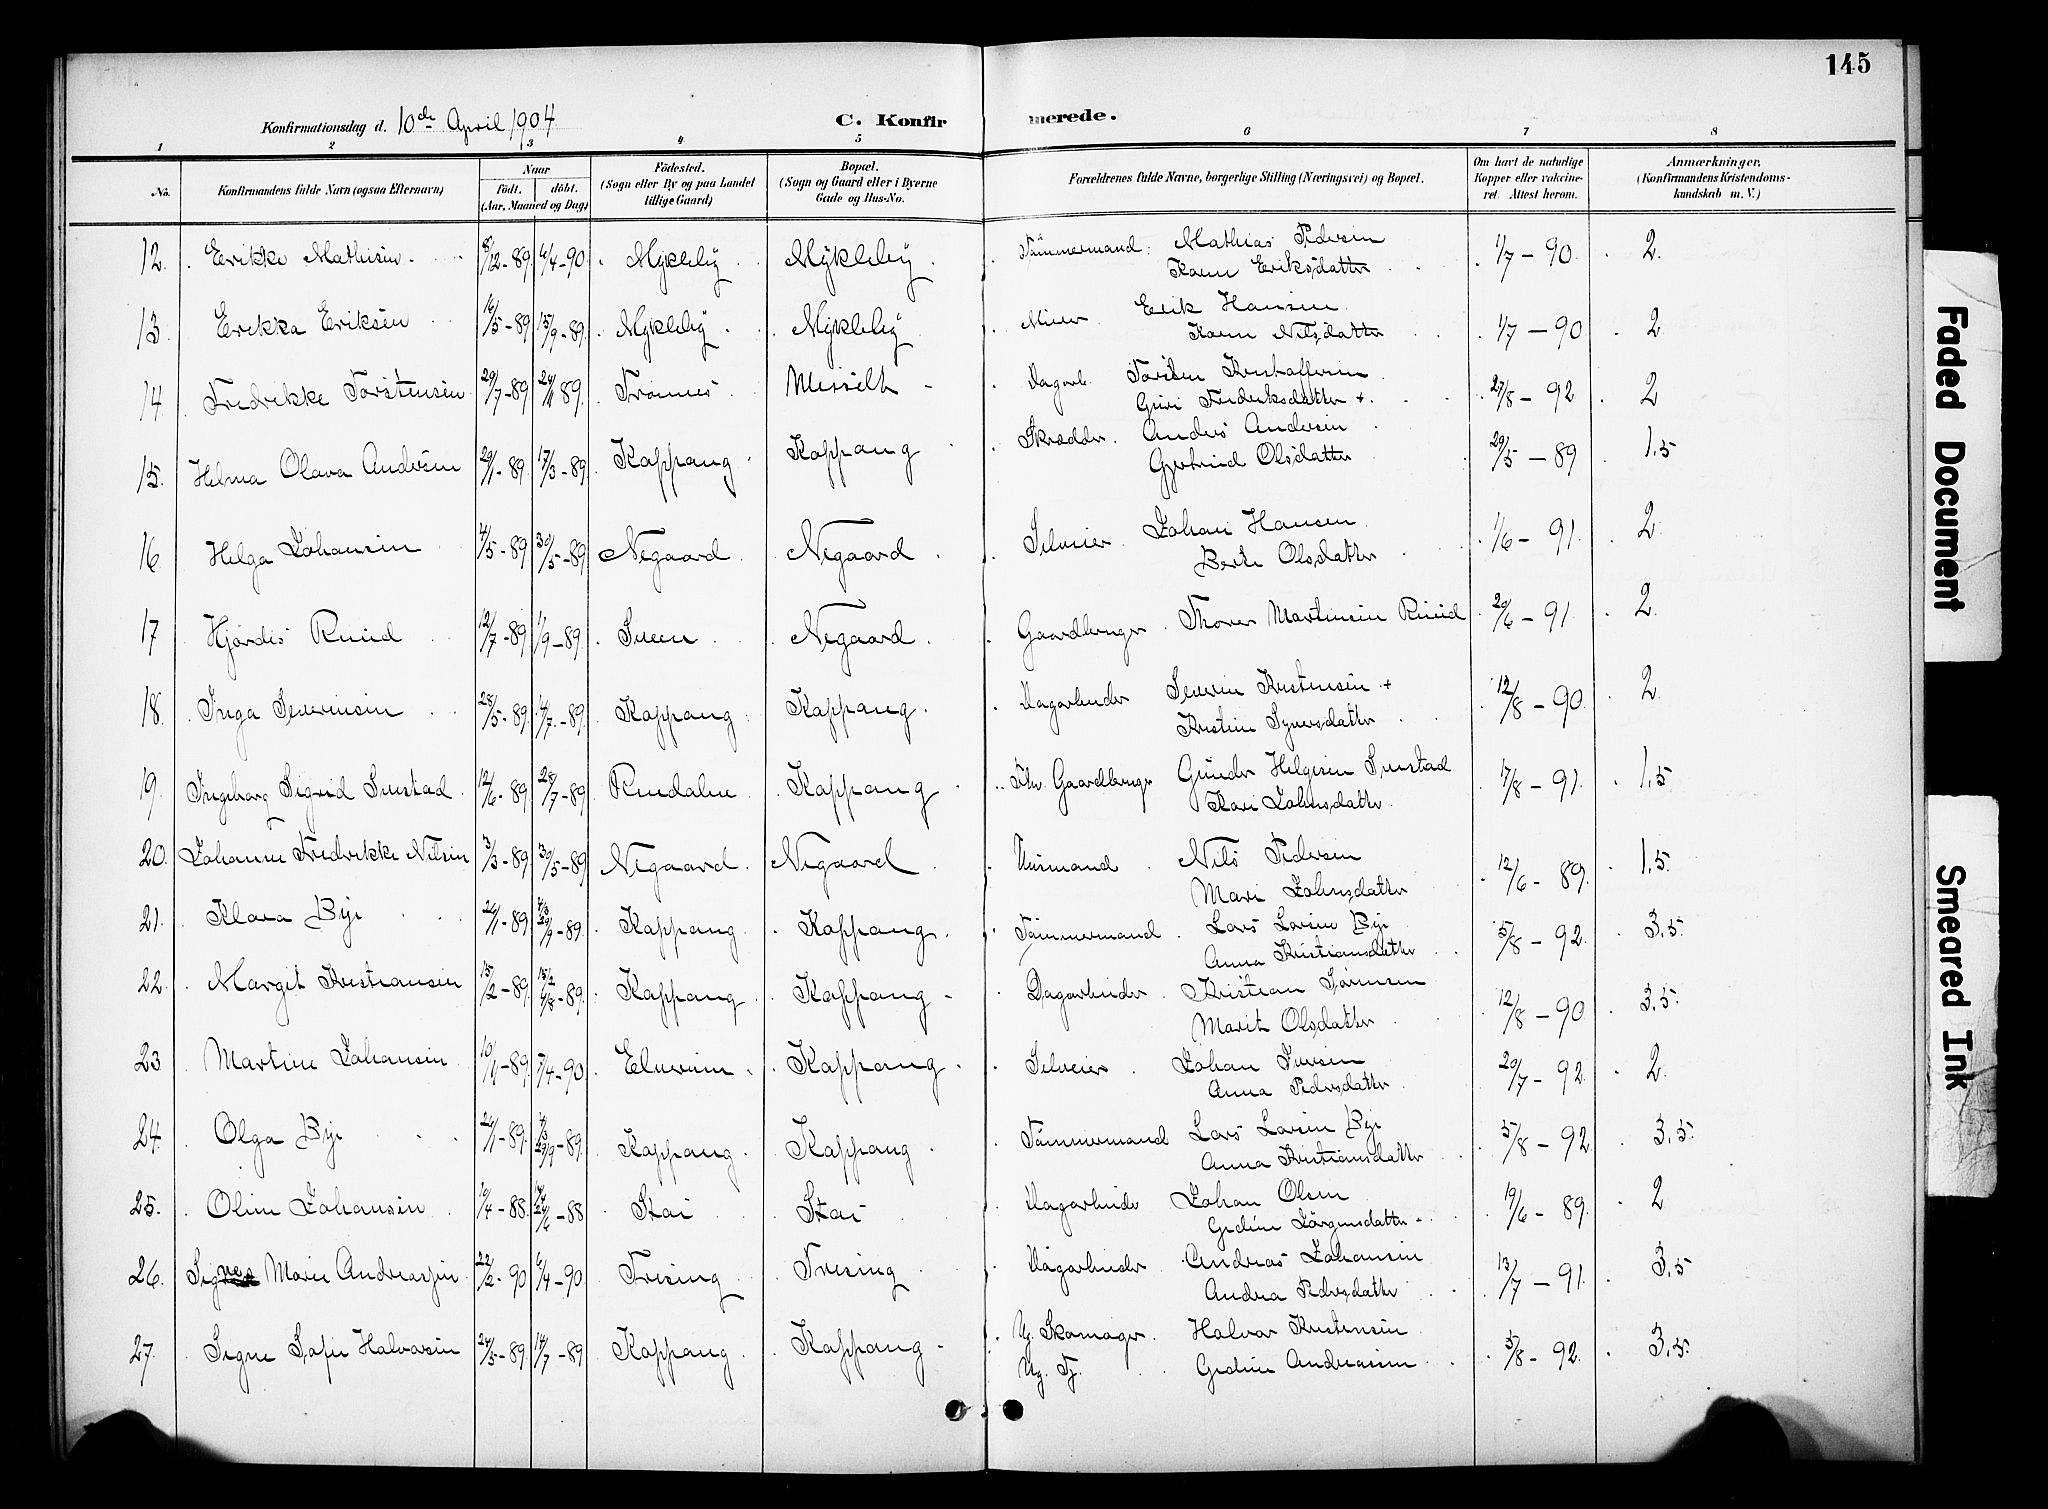 145
Konfirmationsdag d. 10de April 1904
C. Konfirmerede.
1 2 3 4 5 6 7 8
No. Konfirmandens fulde Navn (ogsaa Efternavn) Naar født. døbt. (Aar, Maaned og Dag) Fødested. (Sogn eller By og paa Landet tillige Gaard) Bopæl. (Sogn og Gaard eller i Byerne Gade og Hus-No. Forældrenes fulde Navne, borgerlige Stilling (Næringsvei) og Bopæl. Om havt de naturlige Kopper eller vaccineret. Attest herom. Anmærkninger. (Konfirmandens Kristendomskundskab m. V.)
12. Erikke Mathisen 8/12-89 6/4-90 Mykleby Mykleby Tømmermand Mathias Pedersen 1/7-90 2
Karen Eriksdatter
13. Erikka Eriksen 16/5-89 15/9-89 Mykleby Mykleby Erik Hansen 1/7-90 2
Karen Nilsdatter
14. Fredrikke Torstensen 29/7-89 Trønnes Messelt Dagarb. Torsten Kristoffersen 27/8-92 2
Guri Fredriksdatter +
15. Helma Olava Andersen 29/1-89 17/3-89 Koppang Koppang Skrædder Anders Andersen 29/5-89 1,5
Gjertrud Olsdatter
16 Helga Johansen 4/5-89 30/5-89 Negaard Negaard Selveier Johan Hansen 1/6-91 2
Berte Olsdatter
17 Hjørdis Ruud 12/7-89 1/9-89 Sveen Negaard Gaardbruger Thorer Martinsen Ruud 20/6-91 2
18. Inga Severinsen 28/5-89 14/7-89 Koppang Koppang Dagarbeider Severin Kristensen + 12/8-90 2
Kristine Syversdatter
19. Ingeborg Sigrid Snestad 12/6-89 28/7-89 Rendalen Koppang Fhv. Gaardbruger Gunder Helgesen Snestad 17/8-91 1,5
Kari Johnsdatter
20. Johanne Fredrikke Nilsen 3/3-89 30/5-89 Negaard Negaard Husmand Nils Pedersen 12/6-89 1,5
Mari Johnsdatter
21. Klara Bye 26/1-89 4/3 29/9-89 Koppang Koppang Tømmermand Lars Larsen Bye 5/8-92 3,5
Anna Kristiansdatter
22. Margit Kristiansen 15/2-89 15/2 4/8-89 Koppang Koppang Dagarbeider Kristian Sørensen 12/8-90 3,5
Marit Olsdatter
23 Martine Johansen 7/4-90 Elverum Koppang Selveier Johan Iversen 20/7-92 2
Anna Pedersdatter
24. Olga Bye 26/1-89 4/3 29/9-89 Koppang Koppang Tømmermand Lars Larsen Bye 5/8-92 3,5
Anna Kristiansdatter
25. Oline Johansen 10/4-88 Stai Stai Dagarbeider Johan Olsen 19/6-89 2
Gedine Jørgensdatter
26. Marie Andreassen 22/2-90 6/4-90 Treeing Treeing Dagarbeider Andreas Johansen 13/7-91 3,5
Andrea Pedersdatter
27. Signe Sofie Halvorsen 24/5-89 14/7-89 Koppang Koppang Ug. Skomager Halvor Kristensen 5/8-92 3,5
Ug. Tj. Gedine Andreasen
Faded Document
Smeared Ink